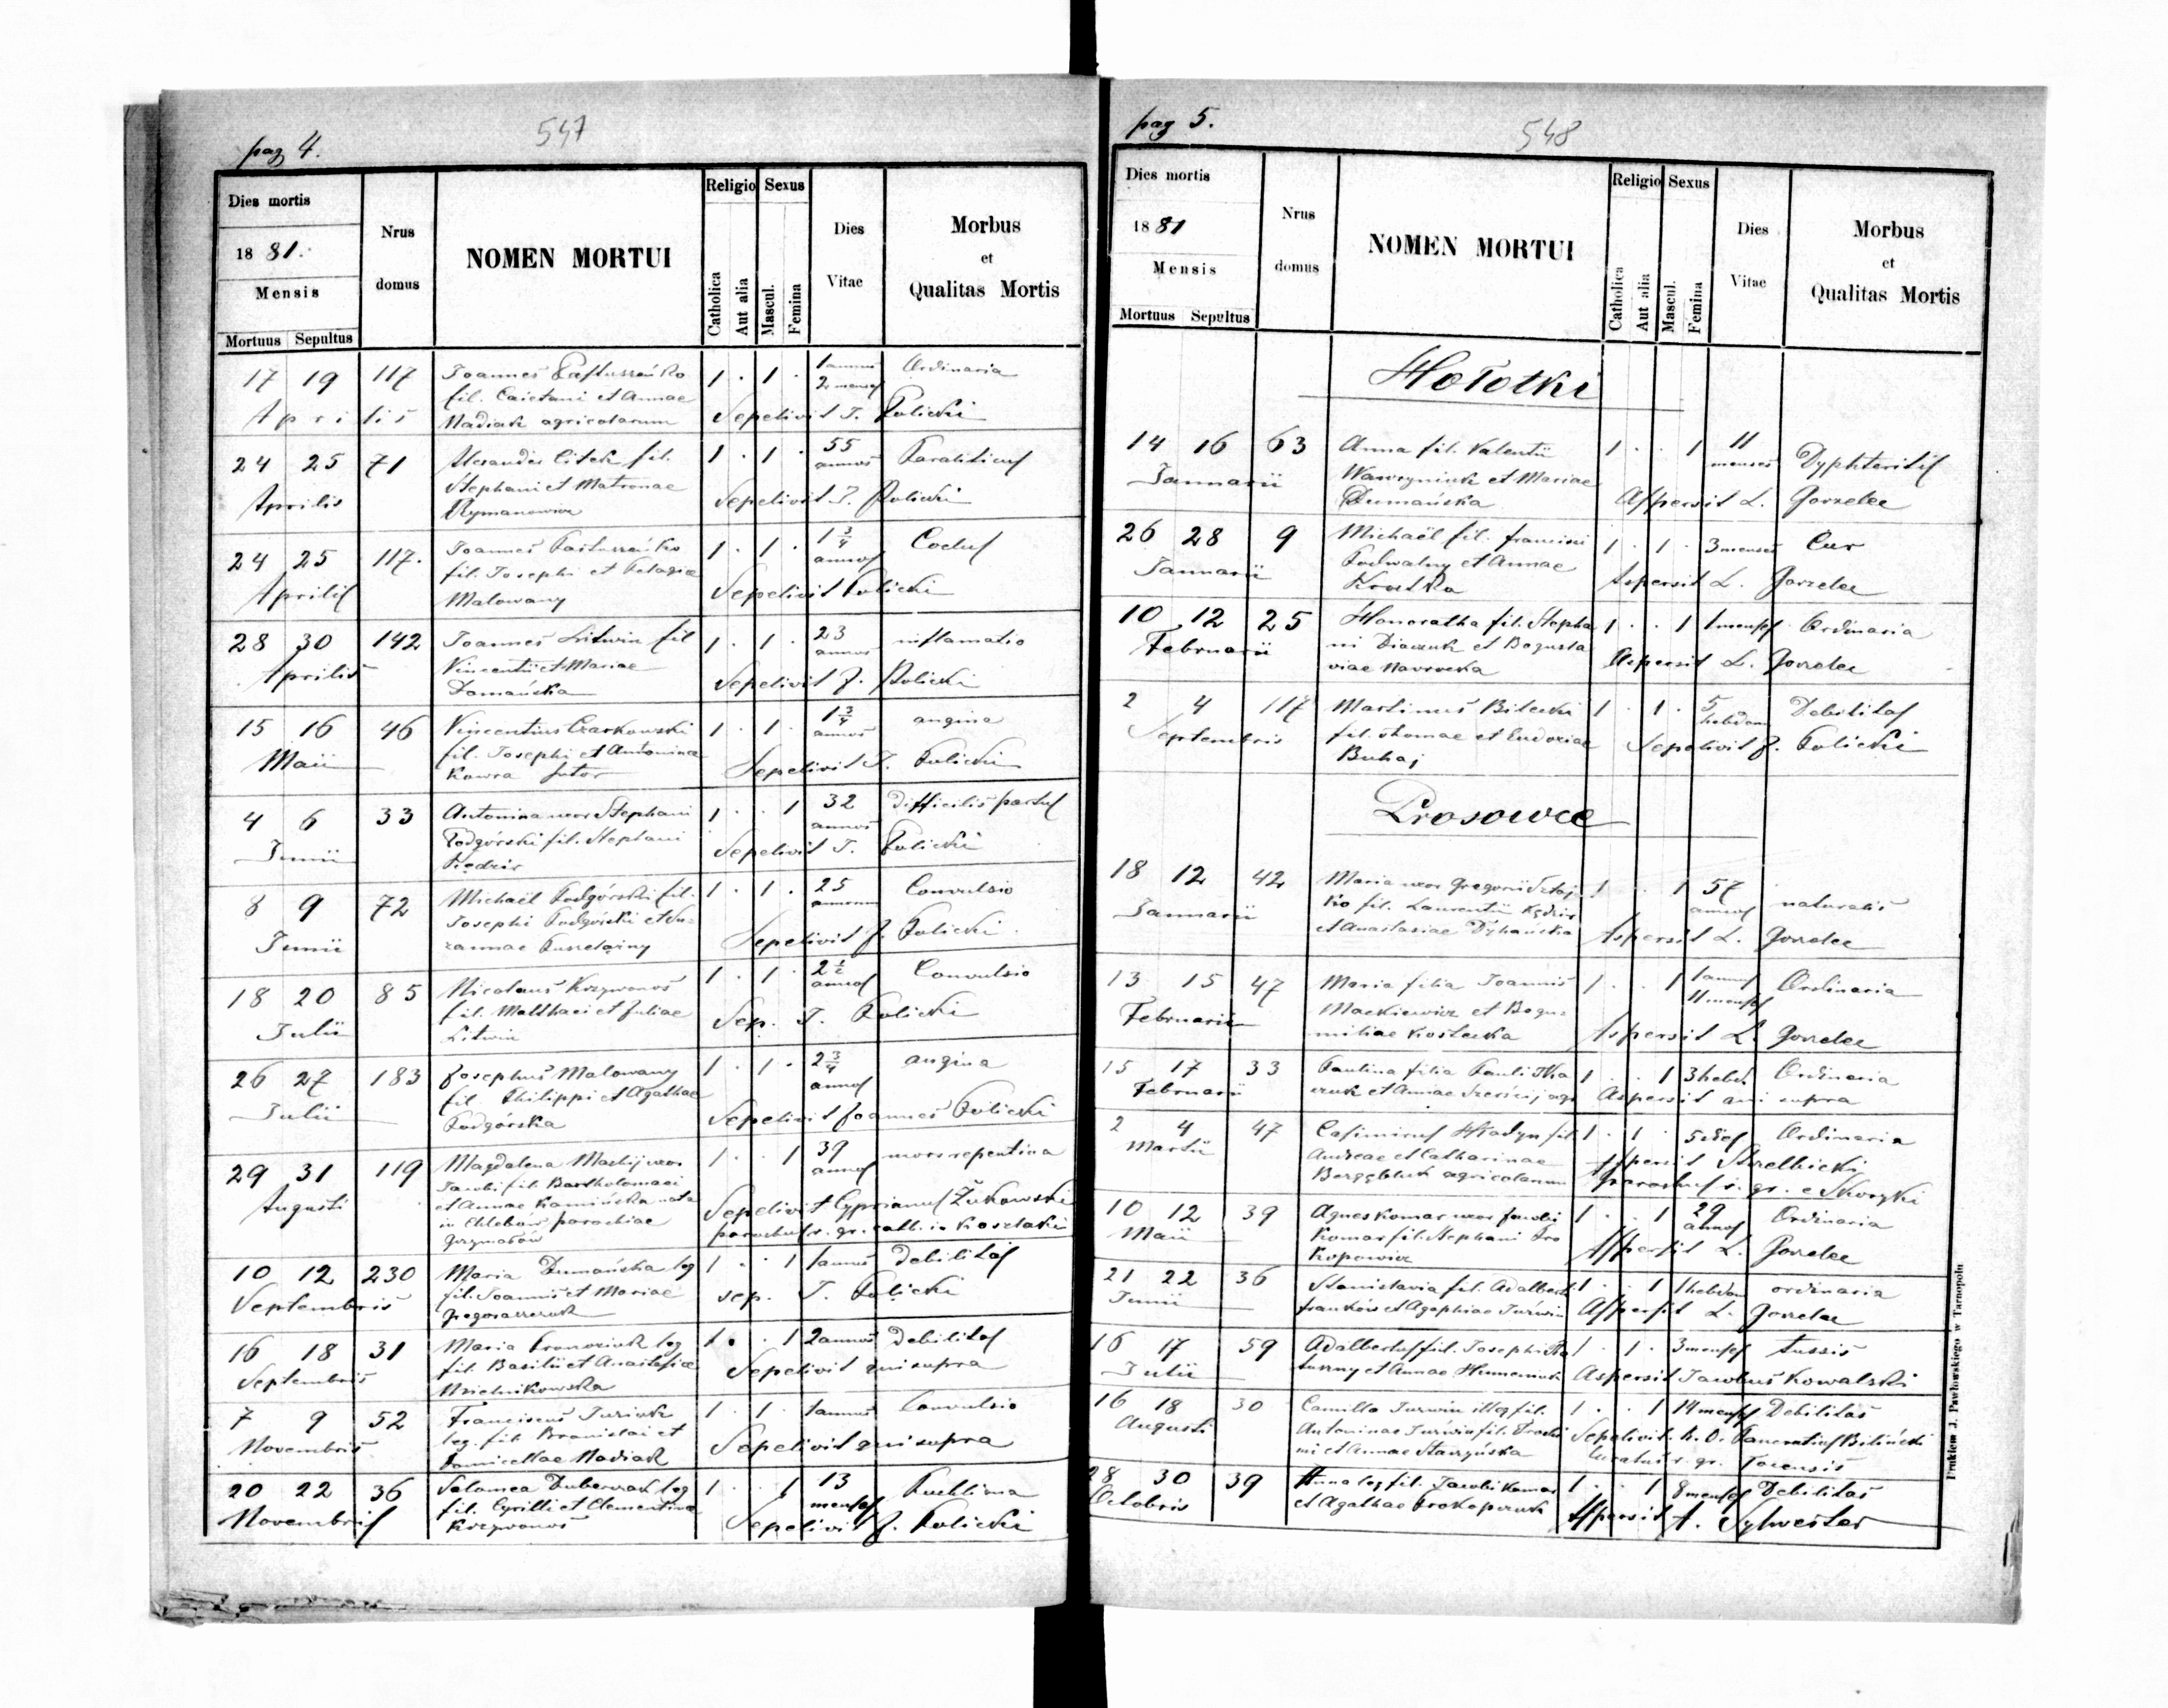 pag 4.
547
Dies mortis
1881.
Mensis
Mortuus Sepultus
Nrus domus
NOMEN MORTUI
Religio
Catholica
Aut alia
Sexus
Mascul.
Femina
Dies Vitae
Morbus
et
Qualitas Mortis
17 19 117 Joannes 1 . 1 . 1 annus Ordinaria
fil. Caietani et Annae 2 menses
Aprilis Madiak agricolarum Sepelivit J. Kolicki
24 25 71 Alexander Citek fil. 1 . 1 . 55 annos
Stephani et Matronae
Aprilis Rymanowicz Sepelivit J. Kolicki
24 25 117. Joannes 1 . 1 . 1 3/4 annos
fil. Josephi et Pelagiae
Aprilis Malowany Sepelivit Kolicki
28 30 142 Joannes Litwin fil 1 . 1 . 23 annos inflamatio
Vincentii et Mariae
Aprilis Damańska Sepelivit J. Kolicki
15 16 46 Vincentius Czarkowski 1 . 1 . 1 3/4 annos angina
fil. Josephi et Antoninae
Maii Kawra sutor Sepelivit J. Kolicki
4 6 33 Antonina uxor Stephani 1 . . 1 32 annos difficilis partus
Podgórski fil. Stephani
Junii Kędzir Sepelivit J. Kolicki
8 9 72 Michaël Podgórski fil. 1 . 1 . 25 annorum Convulsio
Josephi Podgórski et Su-
Junii zannae Sepelivit J. Kolicki
18 20 85 Nicolaus Krzywonos 1 . 1 . 2 1/2 annos Convulsio
fil. Matthaei et Juliae
Julii Litwin Sep. J. Kolicki
26 27 183 Josephus Malowany 1 . 1 . 2 3/4 annos angina
fil. Philippi et Agathae
Julii Podgórska Sepelivit Joannes Kolicki
29 31 119 Magdalena uxor 1 . . 1 39 annos mors repentina
Jacobi fil. Bartholomaei
Augusti et Annae Kamińska nata Sepelivit Cyprianus Żukowski
in Chlebów parochiae parochus r. gr. cath. in Koszlaki
Grzymałów
10 12 230 Maria Dumańska leg 1 . . 1 1 annus debilitas
fil. Joannis et Mariae
Septembris Gregoraszczuk sep. J. Kolicki
16 18 31 Maria leg 1 . . 1 2 annos debilitas
fil. Basilii et Anastasiae
Septembris Sepelivit qui supra
7 9 52 Franciscus Juziuk 1 . 1 . 1 annus Convulsio
leg. fil. Bronislai et
Novembris Domicellae Madiak Sepelivit qui supra
20 22 36 Salomea leg 1 . . 1 13 menses
fil. Cyrilli et Clementinae
Novembris Krzywonos Sepelivit J. Kolicki
pag 5.
548
Dies mortis
1881
Mensis
Mortuus Sepultus
Nrus domus
NOMEN MORTUI
Religio
Catholica
Aut alia
Sexus
Mascul.
Femina
Dies Vitae
Morbus
et
Qualitas Mortis
Hołotki
14 16 63 Anna fil. Valentii 1 . . 1 11 menses Dyphteritis
Januarii Wawryniuk et Mariae
Dumańska Aspersit L. Gorzelec
26 28 9 Michaël fil. Francisci 1 . 1 . 3 menses
Januarii Podwalny et Annae Aspersit L. Gorzelec
Krutka
10 12 25 Honoratha fil. Stepha 1 . . 1 1 mensis Ordinaria
Februarii ni Diaczuk et Bogusla Aspersit L. Gorzelec
viae Nawrocka
2 4 117 Martinus Bilecki 1 . 1 . 5 hebdom Debilitas
Septembris fil. Thomae et Eudoxiae Sepelivit J. Kolicki
Buhaj
Prosowce
18 12 42 Maria uxor Gregorii 1 . . 1 57 annos naturalis
ko fil. Laurentii Kędzir
Januarii et Anastasiae Dyhańska Aspersit L. Gorzelec
13 15 47 Maria filia Joannis 1 . . 1 1 annus Ordinaria
Mackiewicz et Bogu- 11 menses
Februarii miliae Kostecka Aspersit L. Gorzelec
15 17 33 Paulina filia Pauli 1 . . 1 3 hebd. Ordinaria
Februarii et Annae Aspersit qui supra
2 4 47 Casimirus fil. 1 . 1 . 5 dies Ordinaria
Martii Andreae et Catharinae Aspersit Strelbicki
agricolarum parochus r. gr. e Skoryki
10 12 39 Agnes Komar uxor Jacobi 1 . . 1 29 annos Ordinaria
Maii Komar fil. Stephani Pro Aspersit L. Gorzelec
kopowicz
21 22 36 Stanislavia fil. Adalberti 1 . . 1 1 hebdom ordinaria
Junii Franków et Agaphiae Jurówin Aspersit L. Gorzelec
16 17 59 Adalbertus fil. Josephi 1 . 1 . 3 menses tussis
Julii et Annae Aspersit Jacobus Kowalski
16 18 30 Camilla Jurwin illeg fil. 1 . . 1 14 menses Debilitas
Augusti Antoninae Jurwin fil. Sepelivit Pancratius Biliński
et Annae Curatus r. gr.
28 30 39 Anna leg fil. Jacobi Komar 1 . . 1 8 menses Debilitas
Octobris et Agathae Prokopczuk Aspersit A. Sylwester
Drukiem J. Pawłowskiego w Tarnopolu